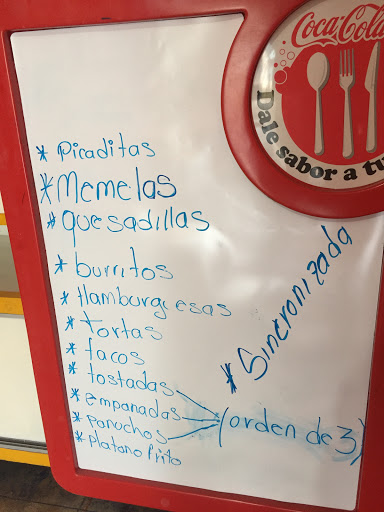 Coca-Cola
Dale sabor a tu
* Picaditas
* Memelas
* quesadillas
* burritos
* Hamburguesas
* tortas
* tacos
* tostadas
* empanadas
* panuchos
* platano frito
(orden de 3)
* Sincronizada